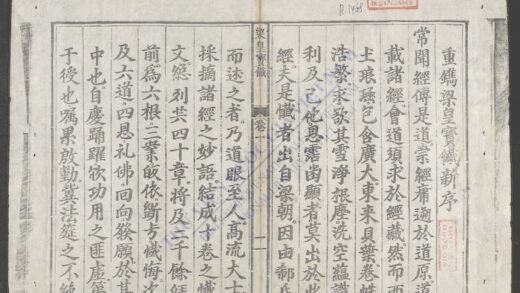 重鐫梁皇寳懺新序
常聞經傳是道崇經痛逈於道原道
載諸經會道須求於經藏然而西
土琅𤧟包含廣大東来貝葉卷帙
浩繁求欲其雪淨根塵洗空蘊識
利及己他恩露幽顯者莫出於此
經夫是懺者出自梁朝因由郗氏
梁皇寳懺
卷一
而述之者乃道眼至人髙流大士
採摘諸經之妙語結成十卷之懺
文總列其四十章將及二千餘
前為六根三業皈依斷
及六道四恩礼佛回向發願於其
中也自慶踊躍欤功用之匪虛
于後也嘱累啟勤冀法筵之不絶
R.1468